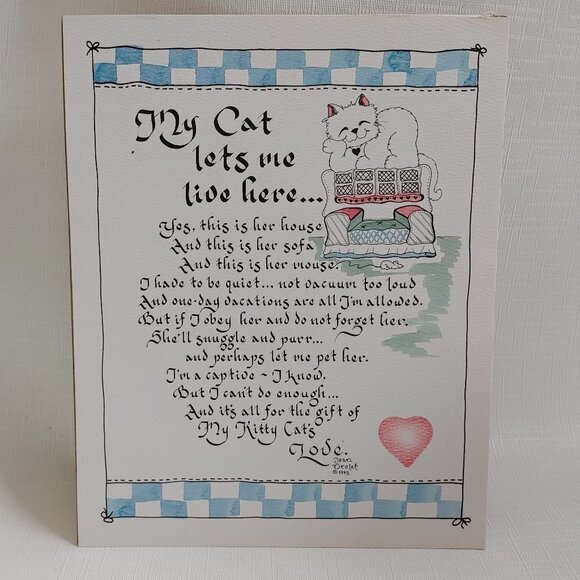 My Cat
lets me
live here...
Yes, this is her house
And this is her sofa
And this is her mouse.
I have to be quiet... not vacuum too loud
And one-day vacations are all I'm allowed.
But if I obey her and do not forget her,
She'll snuggle and purr...
and perhaps let me pet her.
I'm a captive ~ I know,
But I can't do enough...
And it's all for the gift of
My Kitty Cat's
Love.
Jean
Drolet
©1993